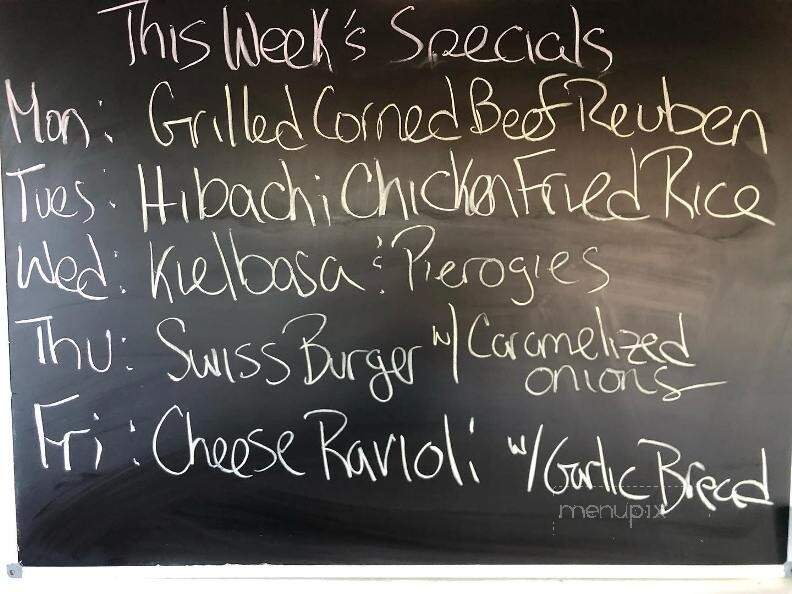 This Week's Specials
Mon: Grilled Corned Beef Reuben
Tues: Hibachi Chicken Fried Rice
Wed: Kielbasa & Pierogies
Thu: Swiss Burger w/ Caramelized
onions
Fri: Cheese Ravioli w/ Garlic Bread
menupix